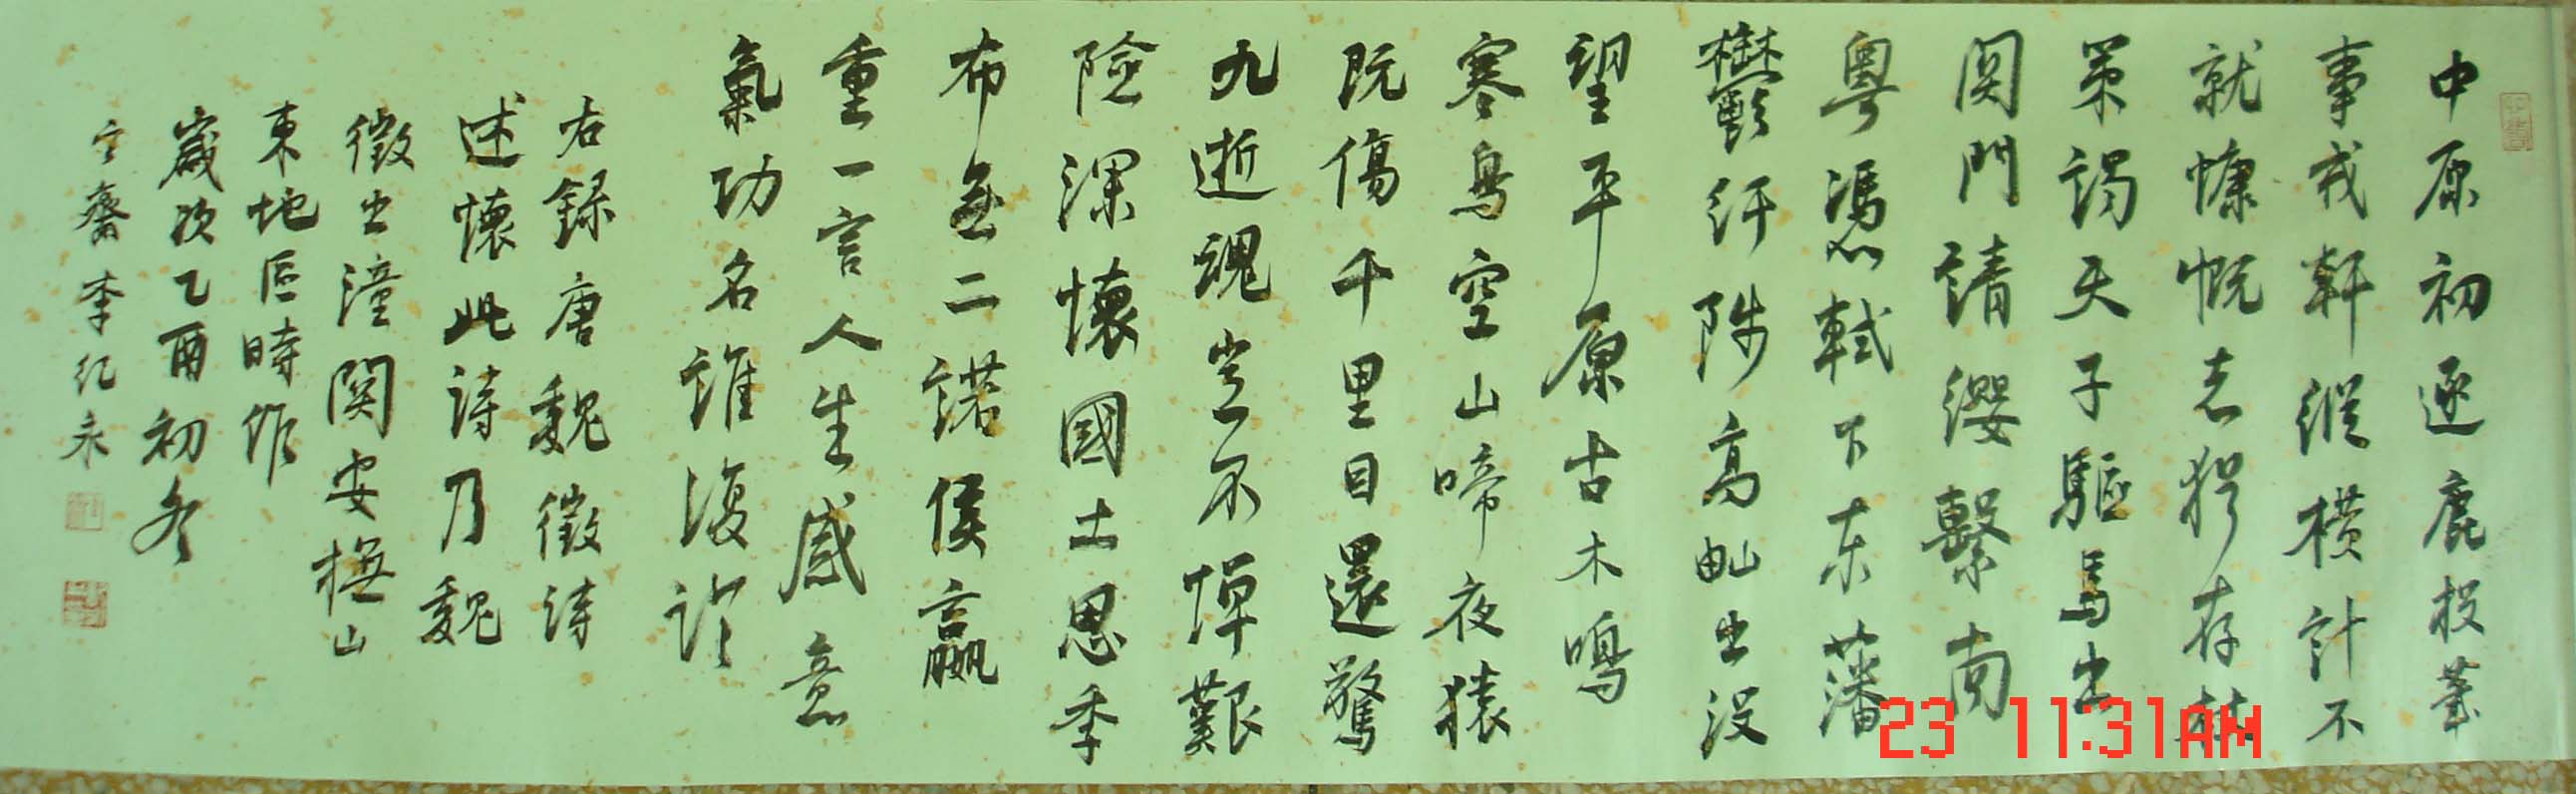 中原初逐鹿投筆
事戎軒縱橫計不
就慷慨志猶存杖
策謁天子驅馬出
関門請纓繫南
粵馮軾下東藩
鬱紆陟高岫出没
望平原古木鳴
寒鳥空山啼夜猿
既傷千里目還驚
九逝魂豈不憚艱
險深懷國士恩季
布無二諾侯嬴
重一言人生感意
氣功名誰復論
右録唐魏徵詩
述懷此詩乃魏
徵出潼関安撫山
東地区時作
歲次乙酉初冬
齋李紀永
23 11:31AM